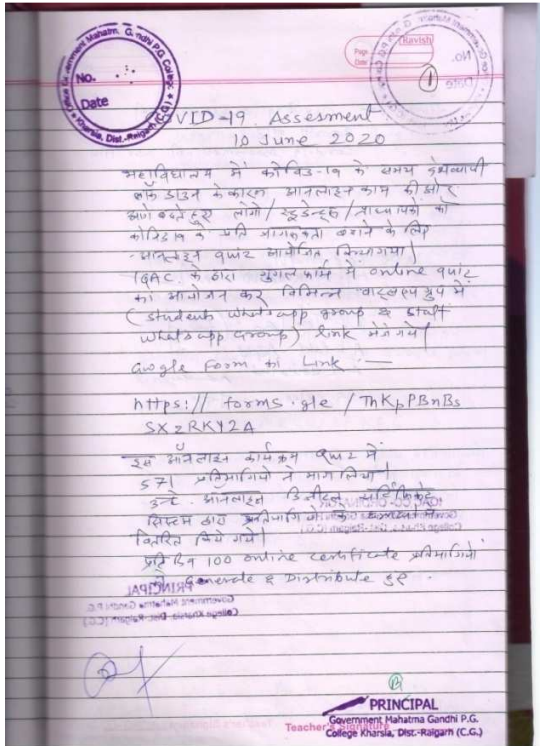 Office Government Mahatma Gandhi P.G. College
Kharsia, Dist.-Raigarh (C.G.)
No.
Date
Ravish
Page
Date
1
COVID-19 Assesment
10 June 2020
महाविद्यालय में कोविड-19 के समय देशव्यापी
लॉकडाउन के कारण आनलाइन काम की ओर
आगे बढते हुए लोगो / स्टूडेन्ट्स / प्राध्यापकों को
कोविड 19 के प्रति जागरूकता बढाने के लिए
आनलाइन quiz आयोजित किया गया|
IQAC के द्वारा गुगल फार्म में online quiz
का आयोजन कर विभिन्न वाट्सएप ग्रुप में
(students whatsapp group & staff
whatsapp Group) link भेजे गये|
Google Form का Link :—
https:// forms.gle /ThKpPBnBs
SXzRKY2A
इस ऑनलाइन कार्यक्रम Quiz में
571 प्रतिभागियो ने भाग लिया|
उन्हे आनलाइन डिजीटल सर्टिफिकेट
सिस्टम द्वारा प्रतिभागियो
वितरित किये गये|
प्रति दिन 100 online certificate प्रतिभागियो
Generate & Distribute हुए.
PRINCIPAL
Government Mahatma Gandhi P.G.
College Kharsia, Dist.-Raigarh (C.G.)
Teacher's Signature
PRINCIPAL
Government Mahatma Gandhi P.G.
College Kharsia, Dist.-Raigarh (C.G.)